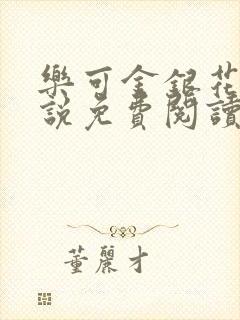 樂可金銀花
說免費閱讀
董麗才